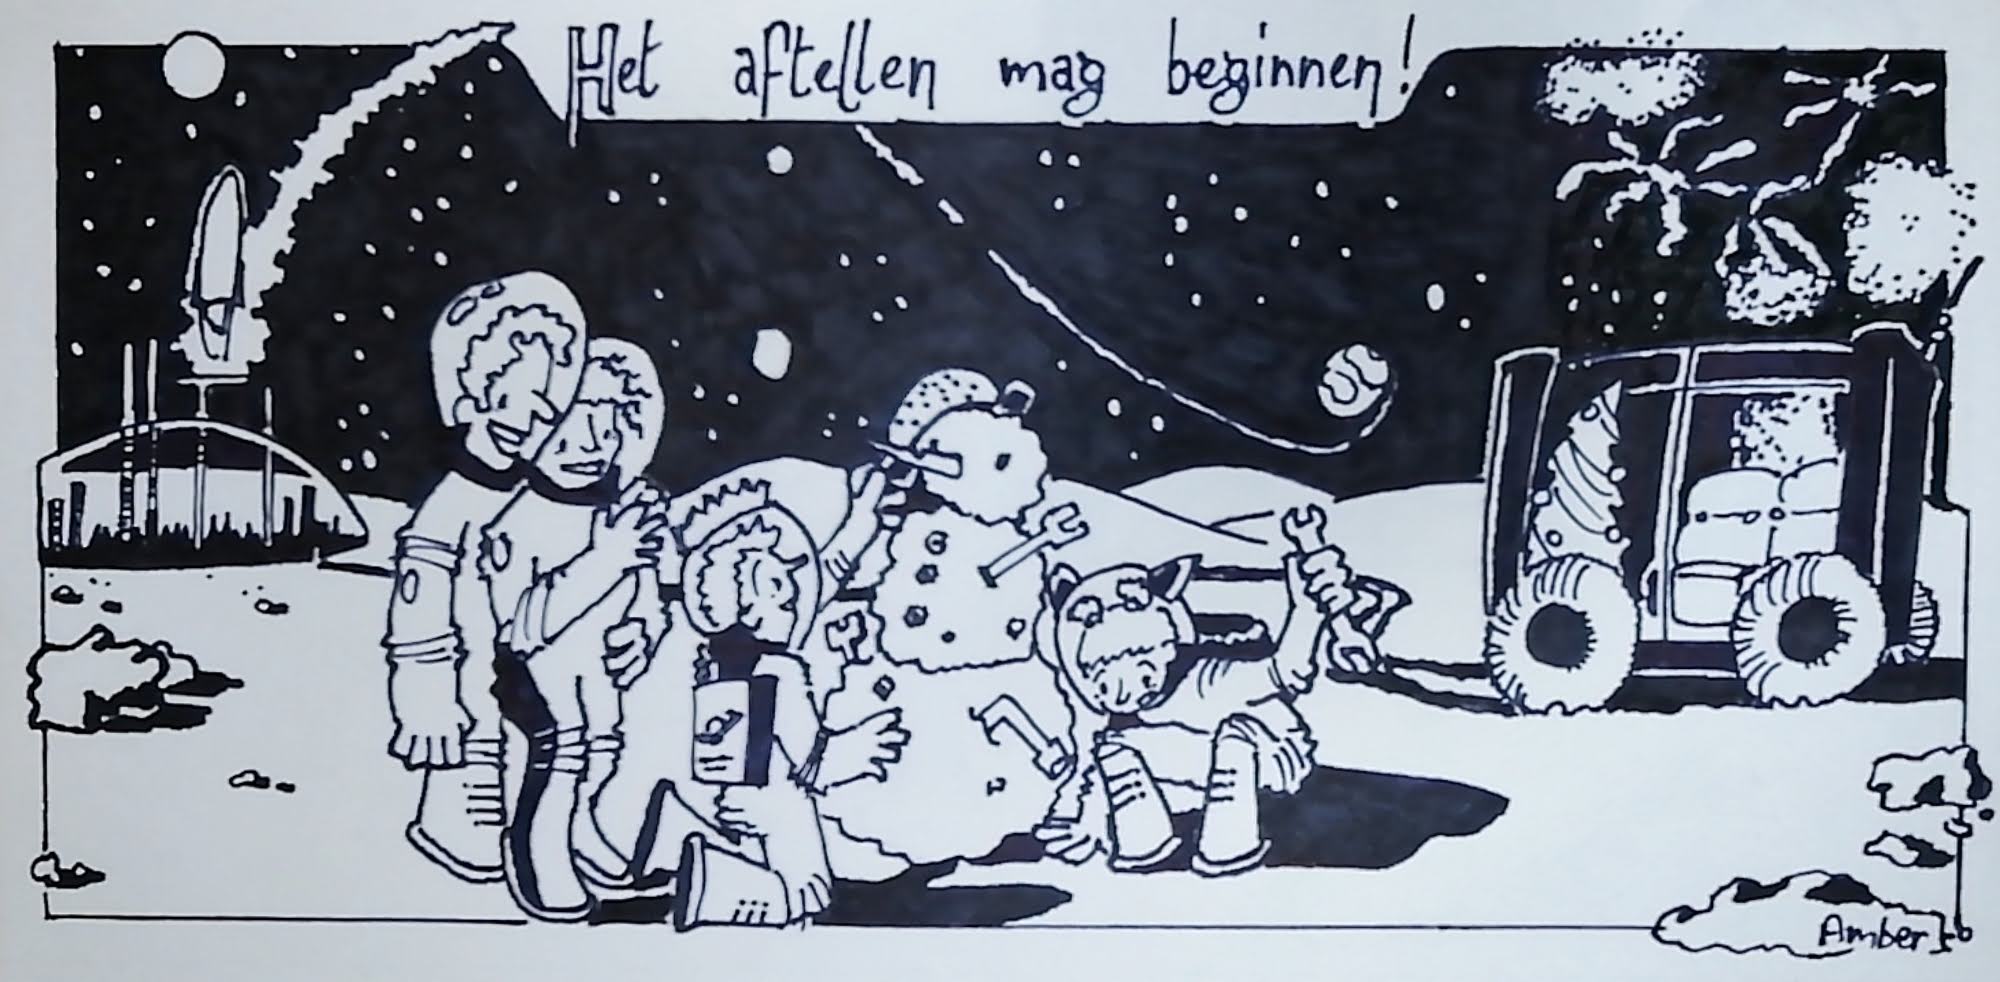 Het aftellen mag beginnen!
Amber